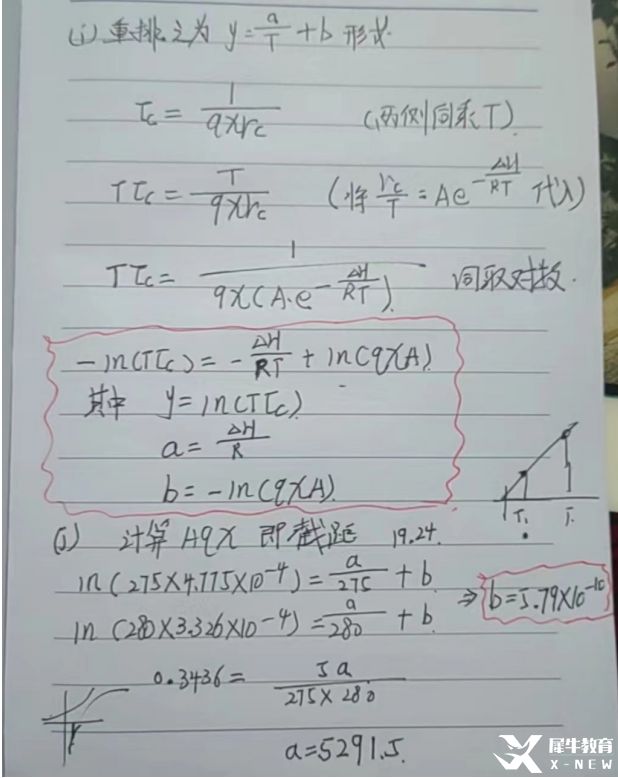 (i) 重排之为 y = a/T + b 形式.
τc = 1/(9χrc) (两侧同乘T)
Tτc = T/(9χrc) (将 rc/T = Ae^(-ΔH/RT) 代入)
Tτc = 1/(9χ(A·e^(-ΔH/RT))) 同取对数.
-ln(Tτc) = -ΔH/RT + ln(9χA)
其中 y = ln(Tτc)
a = ΔH/R
b = -ln(9χA)
(j) 计算A9χ 即截距 19.24.
ln(275×4.775×10^-4) = a/275 + b
ln(280×3.326×10^-4) = a/280 + b
⇒ b=5.79×10^-10
0.3436 = 5a/(275×280)
a=5291.5.
T1
犀牛教育
X-NEW